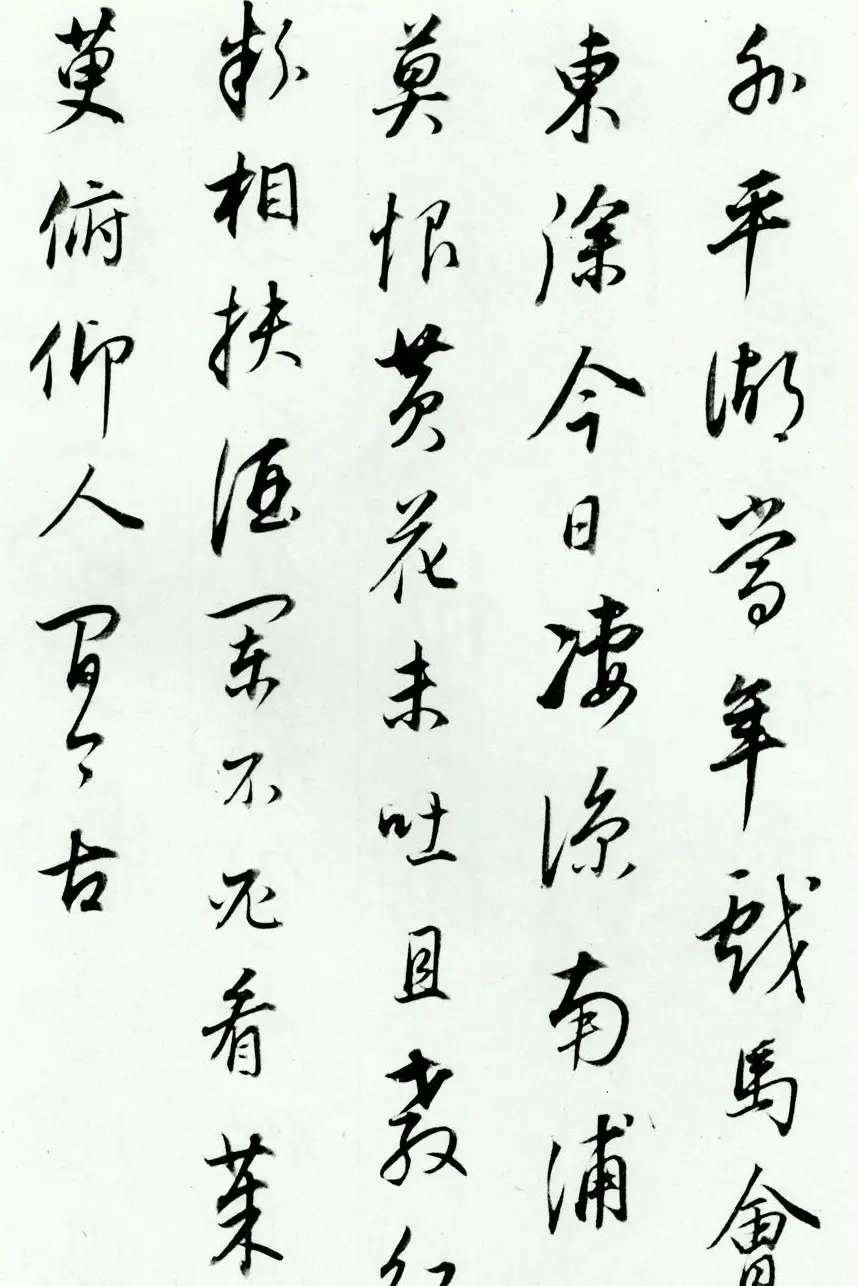 外平湖當年戲馬會
東徐今日淒涼南浦
莫恨黃花未吐且教紅
粉相扶酒闌不必看茱
萸俯仰人間今古